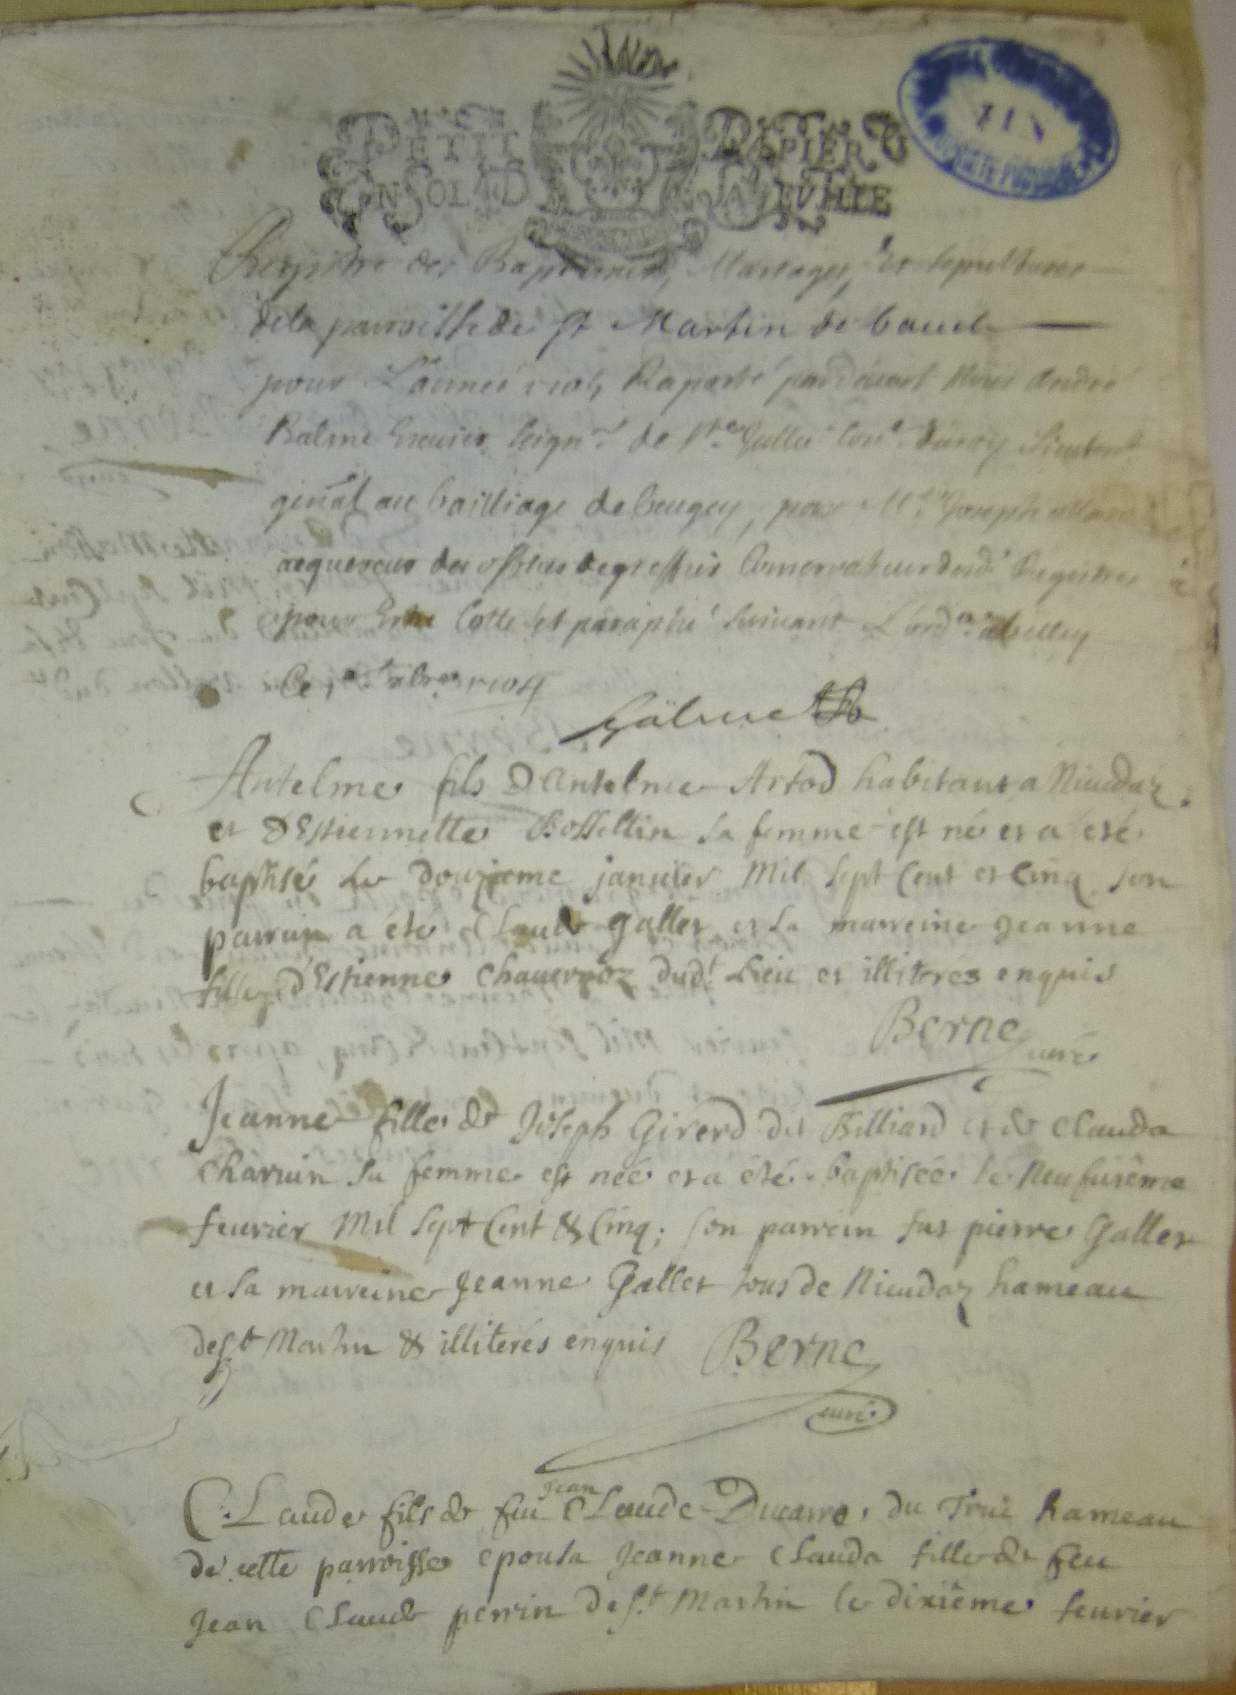 PETIT PAPIER
UN SOL LE D LA FEVILLE
Registre des Baptemes, Mariages, Et sepultures
de la parroisse de St Martin de bauel
pour L'année 1705, Raporté pardeuant Nous André
Balme Escuier seignr de Ste Julle Conr du roy Lieutent
genãl au bailliage de beugey, par Mre Joseph
acquereur des offices de greffier Conservateur desd Registres
pour Estre Cotté et paraphé suivant L'ordce a belley
Ce 1704
Balme
Antelme fils D'Antelme Artod habitant a Niudaz
et D'Estiennette Bossellin sa femme est né et a eté
baptisé Le Douzieme januier Mil sept Cent et Cinq, son
parrain a été Claude Gallet et la marreine Jeanne
fille d'Estienne Chauerroz dudt Lieu et illiterés enquis
Berne
curé
Jeanne fille de Joseph Girerd dit Billiard et de Clauda
Charuin sa femme est née et a été baptisée le Neufuiême
feurier Mil Sept Cent & Cinq; son parrein fut pierre Gallet
et sa marreine Jeanne Gallet tous de Niudaz hameau
de St Martin & illiterés enquis Berne
curé
Jean
Claude fils de feu Claude Ducarre, du Truc hameau
de cette parroisse epousa Jeanne Clauda fille de feu
Jean Claude perrin de St Martin le dixiême feurier